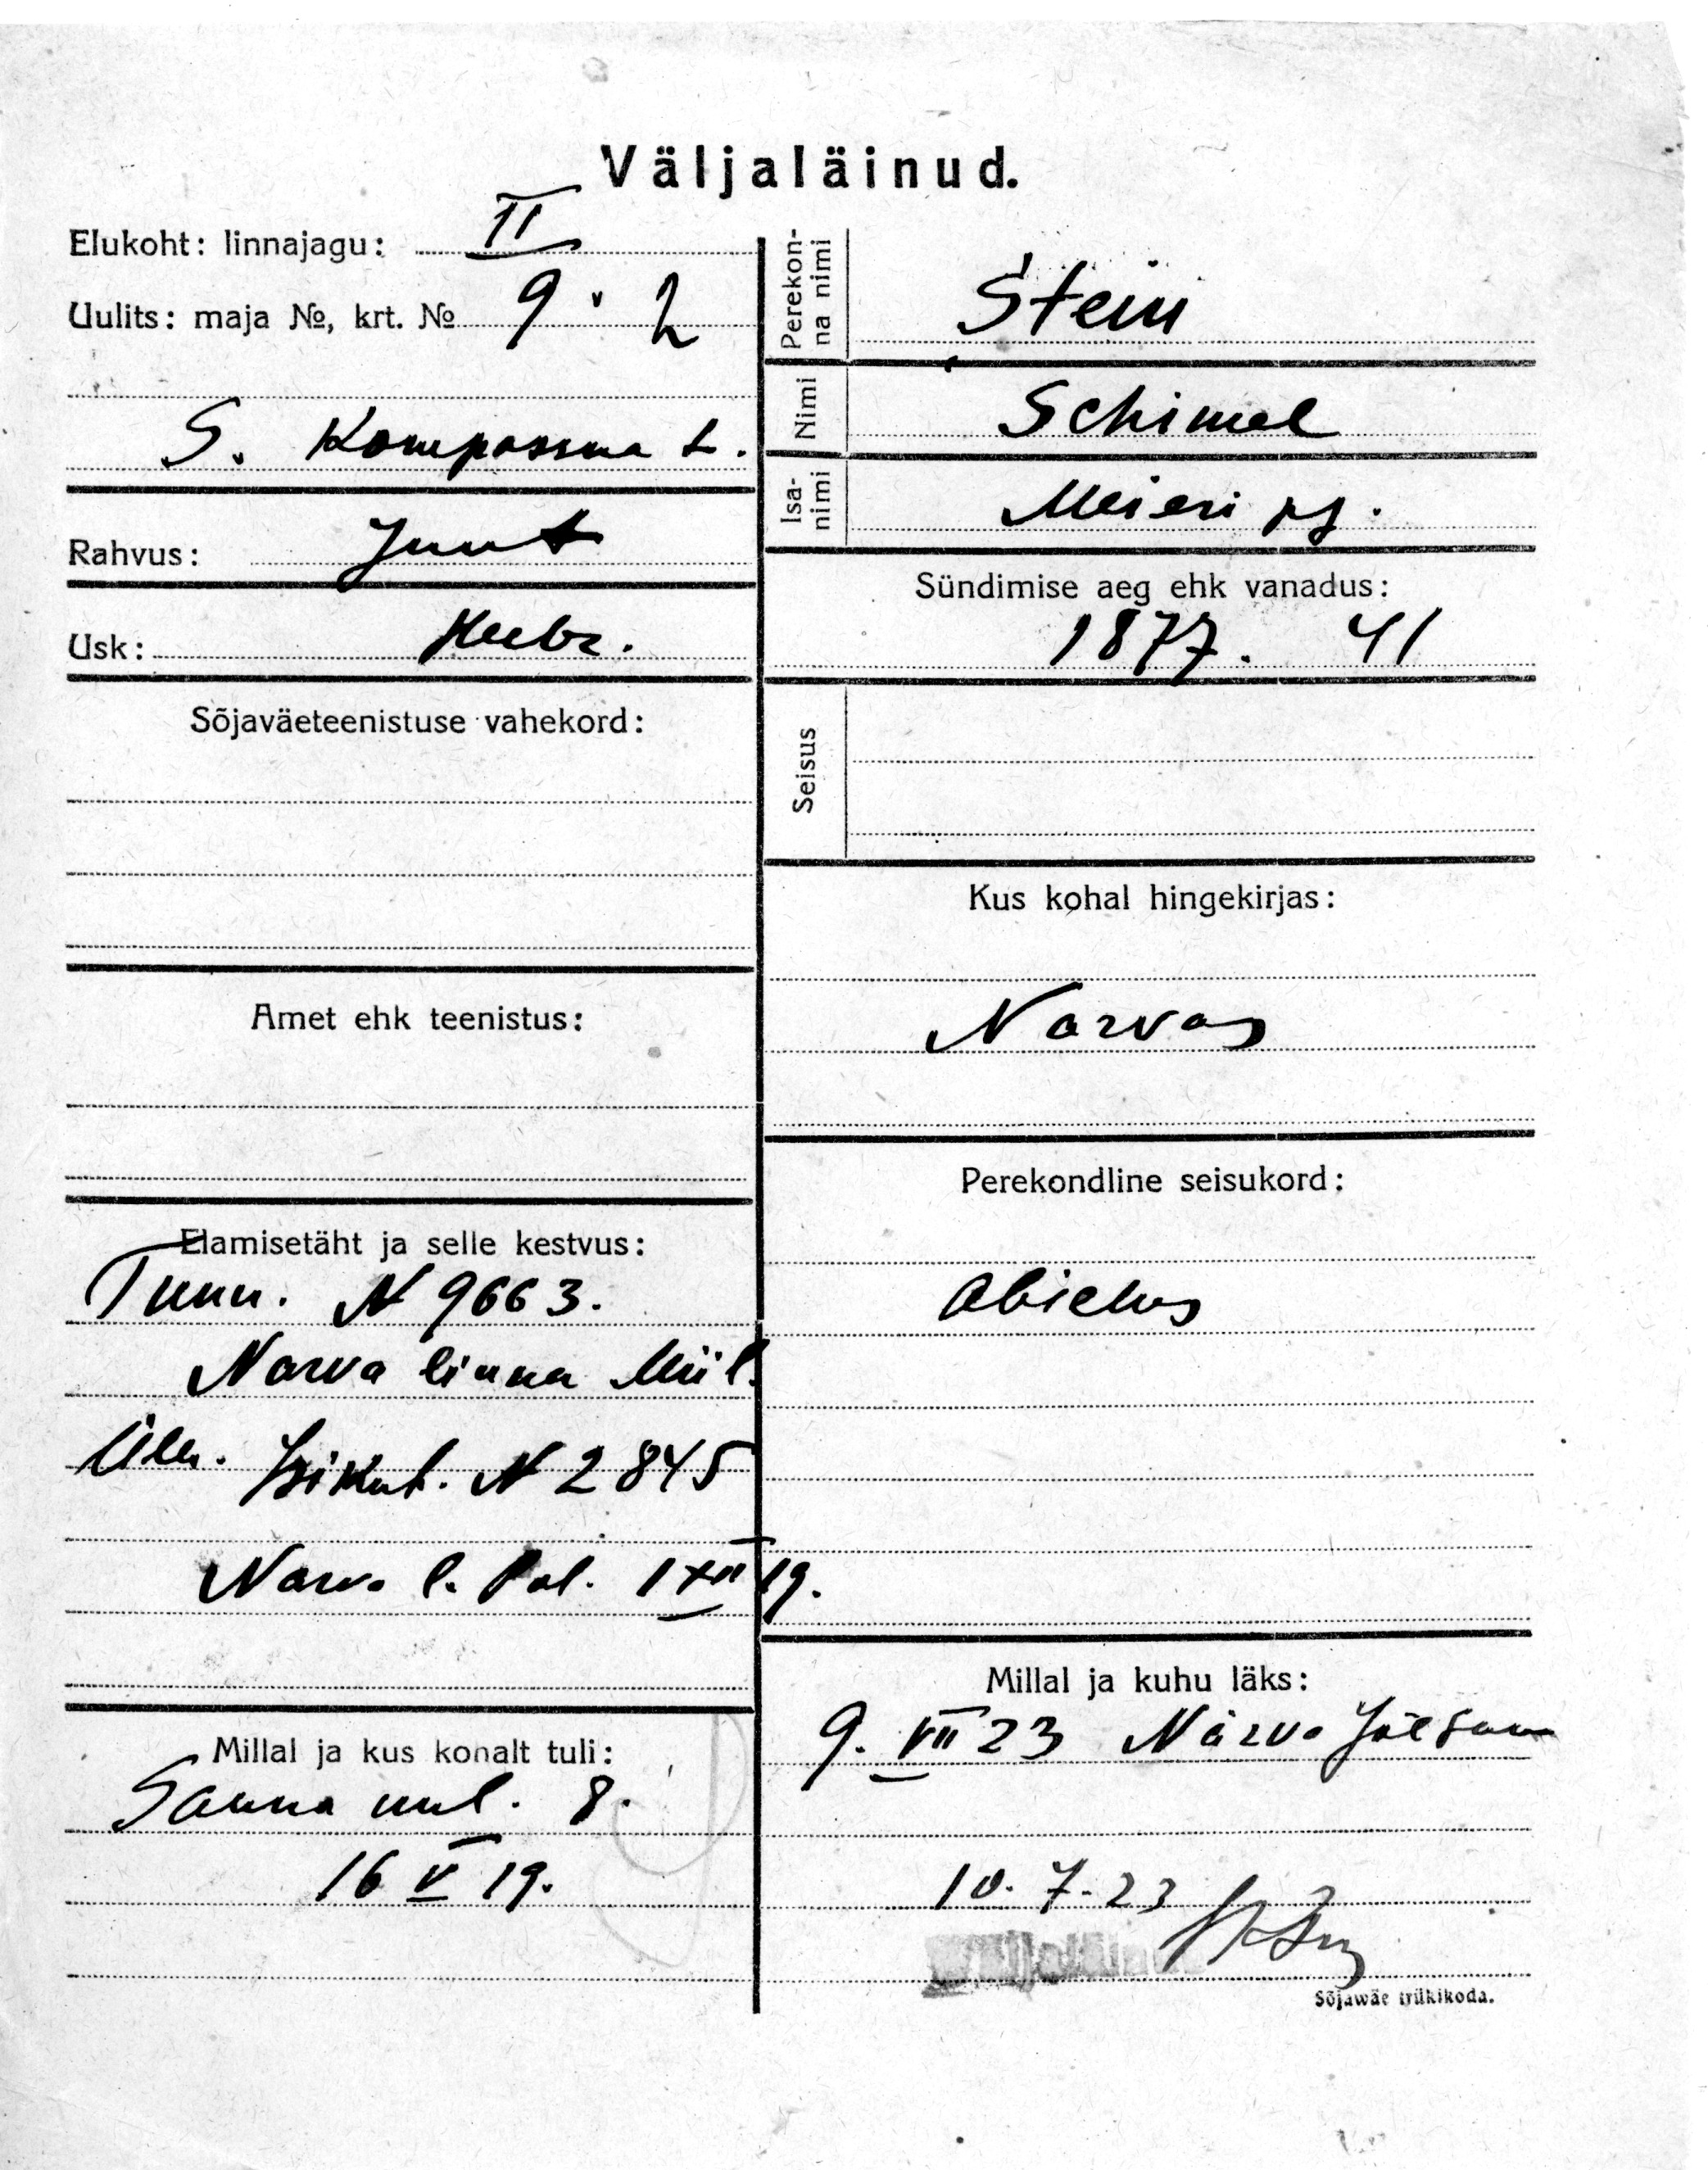 Väljaläinud.
Elukoht: linnajagu: II
Uulits: maja №, krt. № 9 . 2
S. Kompassna t.
Rahvus: Juut
Usk: Heebr.
Sõjaväeteenistuse vahekord:
Amet ehk teenistus:
Elamisetäht ja selle kestvus:
Tunn. N 9663.
Narva linna Miil.
Ülem. Isikut. N 2845
Narva l. Pol. 1 XII 19.
Millal ja kus kohalt tuli:
Sauna uul. 8.
16 V 19.
Perekon-
na nimi
Stein
Nimi Schimel
Isa-
nimi
Meieri pg.
Sündimise aeg ehk vanadus:
1877. 41
Seisus
Kus kohal hingekirjas:
Narvas
Perekondline seisukord:
Abielus
Millal ja kuhu läks:
9. VII 23 Narva Jõesuu
10. 7. 23
Väljaläinud
Sõjawäe trükikoda.